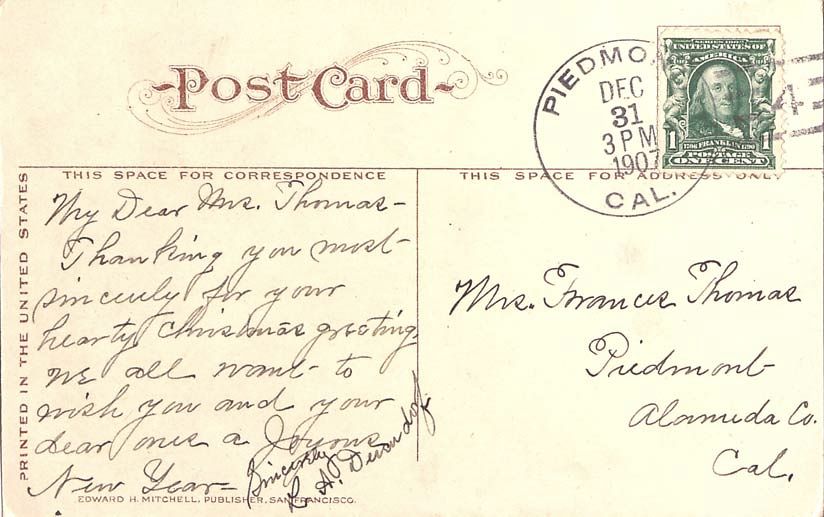 Post Card
PIEDMO
DEC
31
3 PM
1907
CAL.
4
SERIES 1902
UNITED STATES OF
AMERICA
1 1
1706 FRANKLIN 1790
POSTAGE
ONE CENT
THIS SPACE FOR CORRESPONDENCE
THIS SPACE FOR ADDRESS ONLY
PRINTED IN THE UNITED STATES
My Dear Mrs. Thomas-
Thanking you most
sincerely for your
hearty Christmas greeting
we all want to
wish you and your
dear ones a Joyous
New Year-
Sincerely
A.
Mrs. Frances Thomas
Piedmont
Alameda Co.
Cal.
EDWARD H. MITCHELL, PUBLISHER, SAN FRANCISCO.